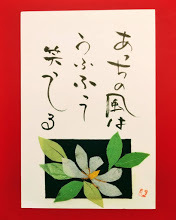 あっちの風は
うふふう
笑てる